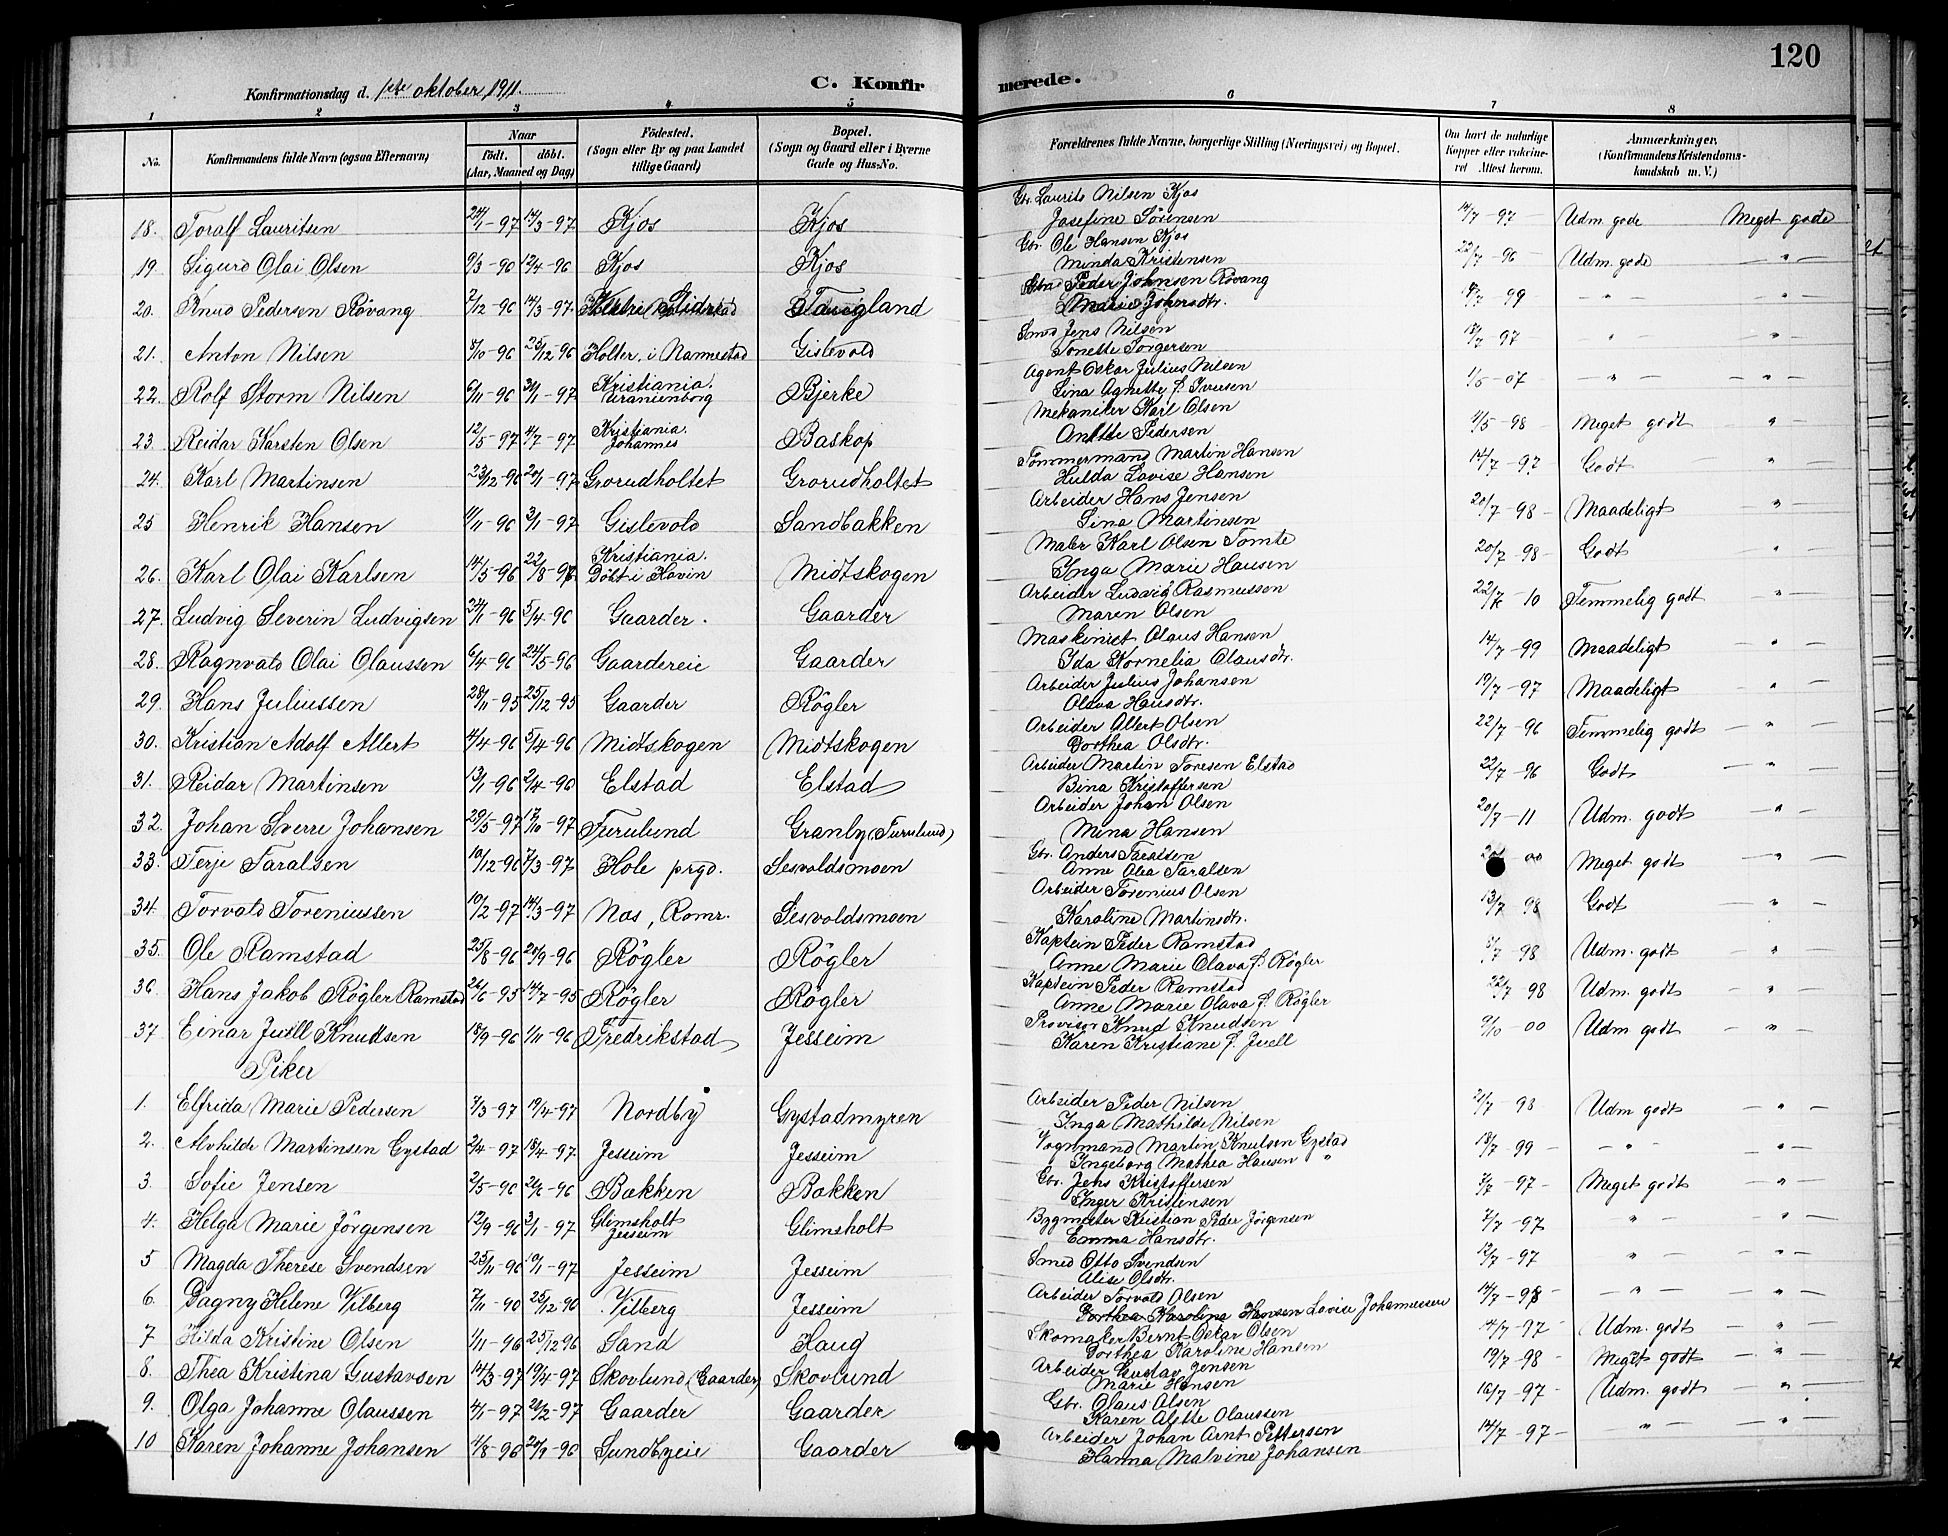 120
Konfirmationsdag d. 1ste oktober 1911.
C. Konfirmerede.
1 2 3 4 5 6 7 8
No.
Konfirmandens fulde Navn (ogsaa Efternavn)
Naar
födt. döbt.
(Aar, Maaned og Dag)
Födested.
(Sogn eller By og paa Landet
tillige Gaard)
Bopæl.
(Sogn og Gaard eller i Byerne
Gade og Hus-No.
Forældrenes fulde Navne, borgerlige Stilling (Næringsvei) og Bopæl.
Om havt de naturlige
Kopper eller vakcine-
ret Attest herom.
Anmærkninger.
(Konfirmandens Kristendoms-
kundskab m. V.)
18. Toralf Lauritsen 24/1-97 14/3-97 Kjos Kjos Gbr. Laurits Nilsen Kjos
Josefine Sörensen 14/7-97 Udm gode Meget gode
19. Sigurd Olai Olsen 9/3-96 12/4-96 Kjos Kjos Gbr. Ole Hansen Kjos
Minda Kristensen 22/7-96 Udm. gode — " —
20. Knud Pedersen Rövang 7/12-96 14/3-97 Taugland Peder Johnsen Rövang
Marie Johnsdtr. -99 — " — — " —
21. Anton Nilsen 8/10-96 25/12-96 Holter, i Nannestad Gislevold Smed Jens Nilsen
Tonette Torgersen 18/7-97 — " — "
22. Rolf Storm Nilsen 6/11-96 31/1-97 Kristiania. Uranienborg Bjerke Agent Oskar Julius Nilsen
Lina Agnethe f. Iversen 1/6-07 — " — — " —
23. Reidar Karsten Olsen 12/5-97 4/7-97 Kristiania. Johannes Baskop Mekaniker Karl Olsen
Anette Pedersen 11/5-98 Meget godt "
24. Karl Martinsen 23/12-96 20/1-97 Grorudholtet Grorudholtet Tömmermand Martin Hansen
Hulda Lovise Hansen 14/7-97 Godt "
25 Henrik Hansen 11/11-96 3/1-97 Gislevold Sandbakken Arbeider Hans Jensen
Lina Martinsen 20/7-98 Maadeligt — " —
26. Karl Olai Karlsen 14/5-96 22/8-96 Kristiania. Döbt i Hovin Midtskogen Maler Karl Olsen Tomte
Inga Marie Hansen 20/7-98 Godt "
27. Ludvig Severin Ludvigsen 24/1-96 5/4-96 Gaarder. Gaarder Arbeider Ludvig Rasmussen
Maren Olsen 22/7-10 Temmelig godt — " —
28. Ragnvald Olai Olaussen 6/4-96 24/5-96 Gaardereie Gaarder Maskinist Olaus Hansen
Ida Kornelia Olausdtr. 14/7-99 Maadeligt "
29. Hans Juliussen 28/11-95 25/12-95 Gaarder Rögler Arbeider Julius Johansen
Olava Hansdtr. 19/7-97 Maadeligt "
30. Kristian Adolf Albert 4/4-96 5/4-96 Midtskogen Midtskogen Arbeider Albert Olsen
Dorthea Olsdtr. 22/7-96 Temmelig godt — " —
31. Reidar Martinsen 13/1-96 2/4-96 Elstad Elstad Arbeider Martin Toresen Elstad
Bina Kristoffersen 22/7-96 Godt — " —
32. Johan Sverre Johansen 29/5-97 17/10-97 Furulund Granby (Furulund) Arbeider Johan Olsen
Mina Hansen 20/7-11 Udm. godt — " —
33. Terje Taralsen 10/12-96 7/3-97 Hole prgd. Sesvoldsmoen Gbr. Anders Taraldsen
Anne Olea Taralsen 00 Meget godt — " —
34. Torvald Toreniussen 10/2-97 14/3-97 Nes, Romr. Sesvoldsmoen Arbeider Torenius Olsen
Karoline Martinsdtr. 13/7-98 Godt — " —
35. Ole Ramstad 25/8-96 20/9-96 Rögler Rögler Kaptein Peder Ramstad
Anne Marie Olava f. Rögler 8/7-98 Udm. godt "
36. Hans Jakob Rögler Ramstad 26/6-95 14/7-95 Rögler Rögler Kaptein Peder Ramstad
Anne Marie Olava f. Rögler 22/7-98 Udm. godt — " —
37 Einar Juell Knudsen 18/9-96 1/11-96 Fredrikstad Jesseim Provisor Knud Knudsen
Karen Kristiane f. Juell 9/10-00 Udm godt — " —
Piker
1. Elfrida Marie Pedersen 7/3-97 19/4-97 Nordby Gystadmyren Arbeider Peder Nilsen
Inga Mathilde Nilsen 21/7-98 Udm godt — " —
2. Alvhilde Martinsen Gystad 2/4-97 18/4-97 Jesseim Jesseim Vognmand Martin Knutsen Gystad
Ingeborg Mathea Hansen " 18/7-99 — " — — " —
3. Sofie Jensen 2/5-96 21/6-96 Bakken Bakken Gbr. Jens Kristoffersen
Inger Kristensen 3/7-97 Meget godt — " —
4. Helga Marie Jörgensen 12/9-96 3/1-97 Glimsholt Jesseim Glimsholt Bygmester Kristian Peder Jörgensen
Emma Hansdtr. 7/7-97 " — " —
5 Magda Therese Svendsen 25/11-96 10/1-97 Jesseim Jesseim Smed Otto Svendsen
Alise Olsdtr. 12/7-97 " — " —
6. Dagny Helene Vilberg 7/11-96 25/12-96 Vilberg Jesseim Arbeider Torvald Olsen
Dorthea Karolina Hansen Lovise Johannessen 14/7-98 — " — — " —
7 Hilda Kristine Olsen 1/11-96 25/12 96 Sand Haug Skomaker Bernt Oskar Olsen
Dorthea Karoline Hansen 14/7-97 Udm. godt — " —
8. Thea Kristina Gustavsen 14/3-97 19/4-97 Skovlund (Gaarder) Skovlund Arbeider Gustav Jensen
Marie Hansen 19/7-98 Meget godt — " —
9. Olga Johanne Olaussen 4/1-97 21/2-97 Gaarder Gaarder Gbr. Olaus Olsen
Karen Alette Olaussen 16/7-97 Udm. godt — " —
10 Karen Johanne Johansen 4/8-96 20/9-96 Sundbyeie Gaarder Arbeider Johan Arnt Pettersen
Hanna Malvine Johansen 14/7-97 — " — — " —